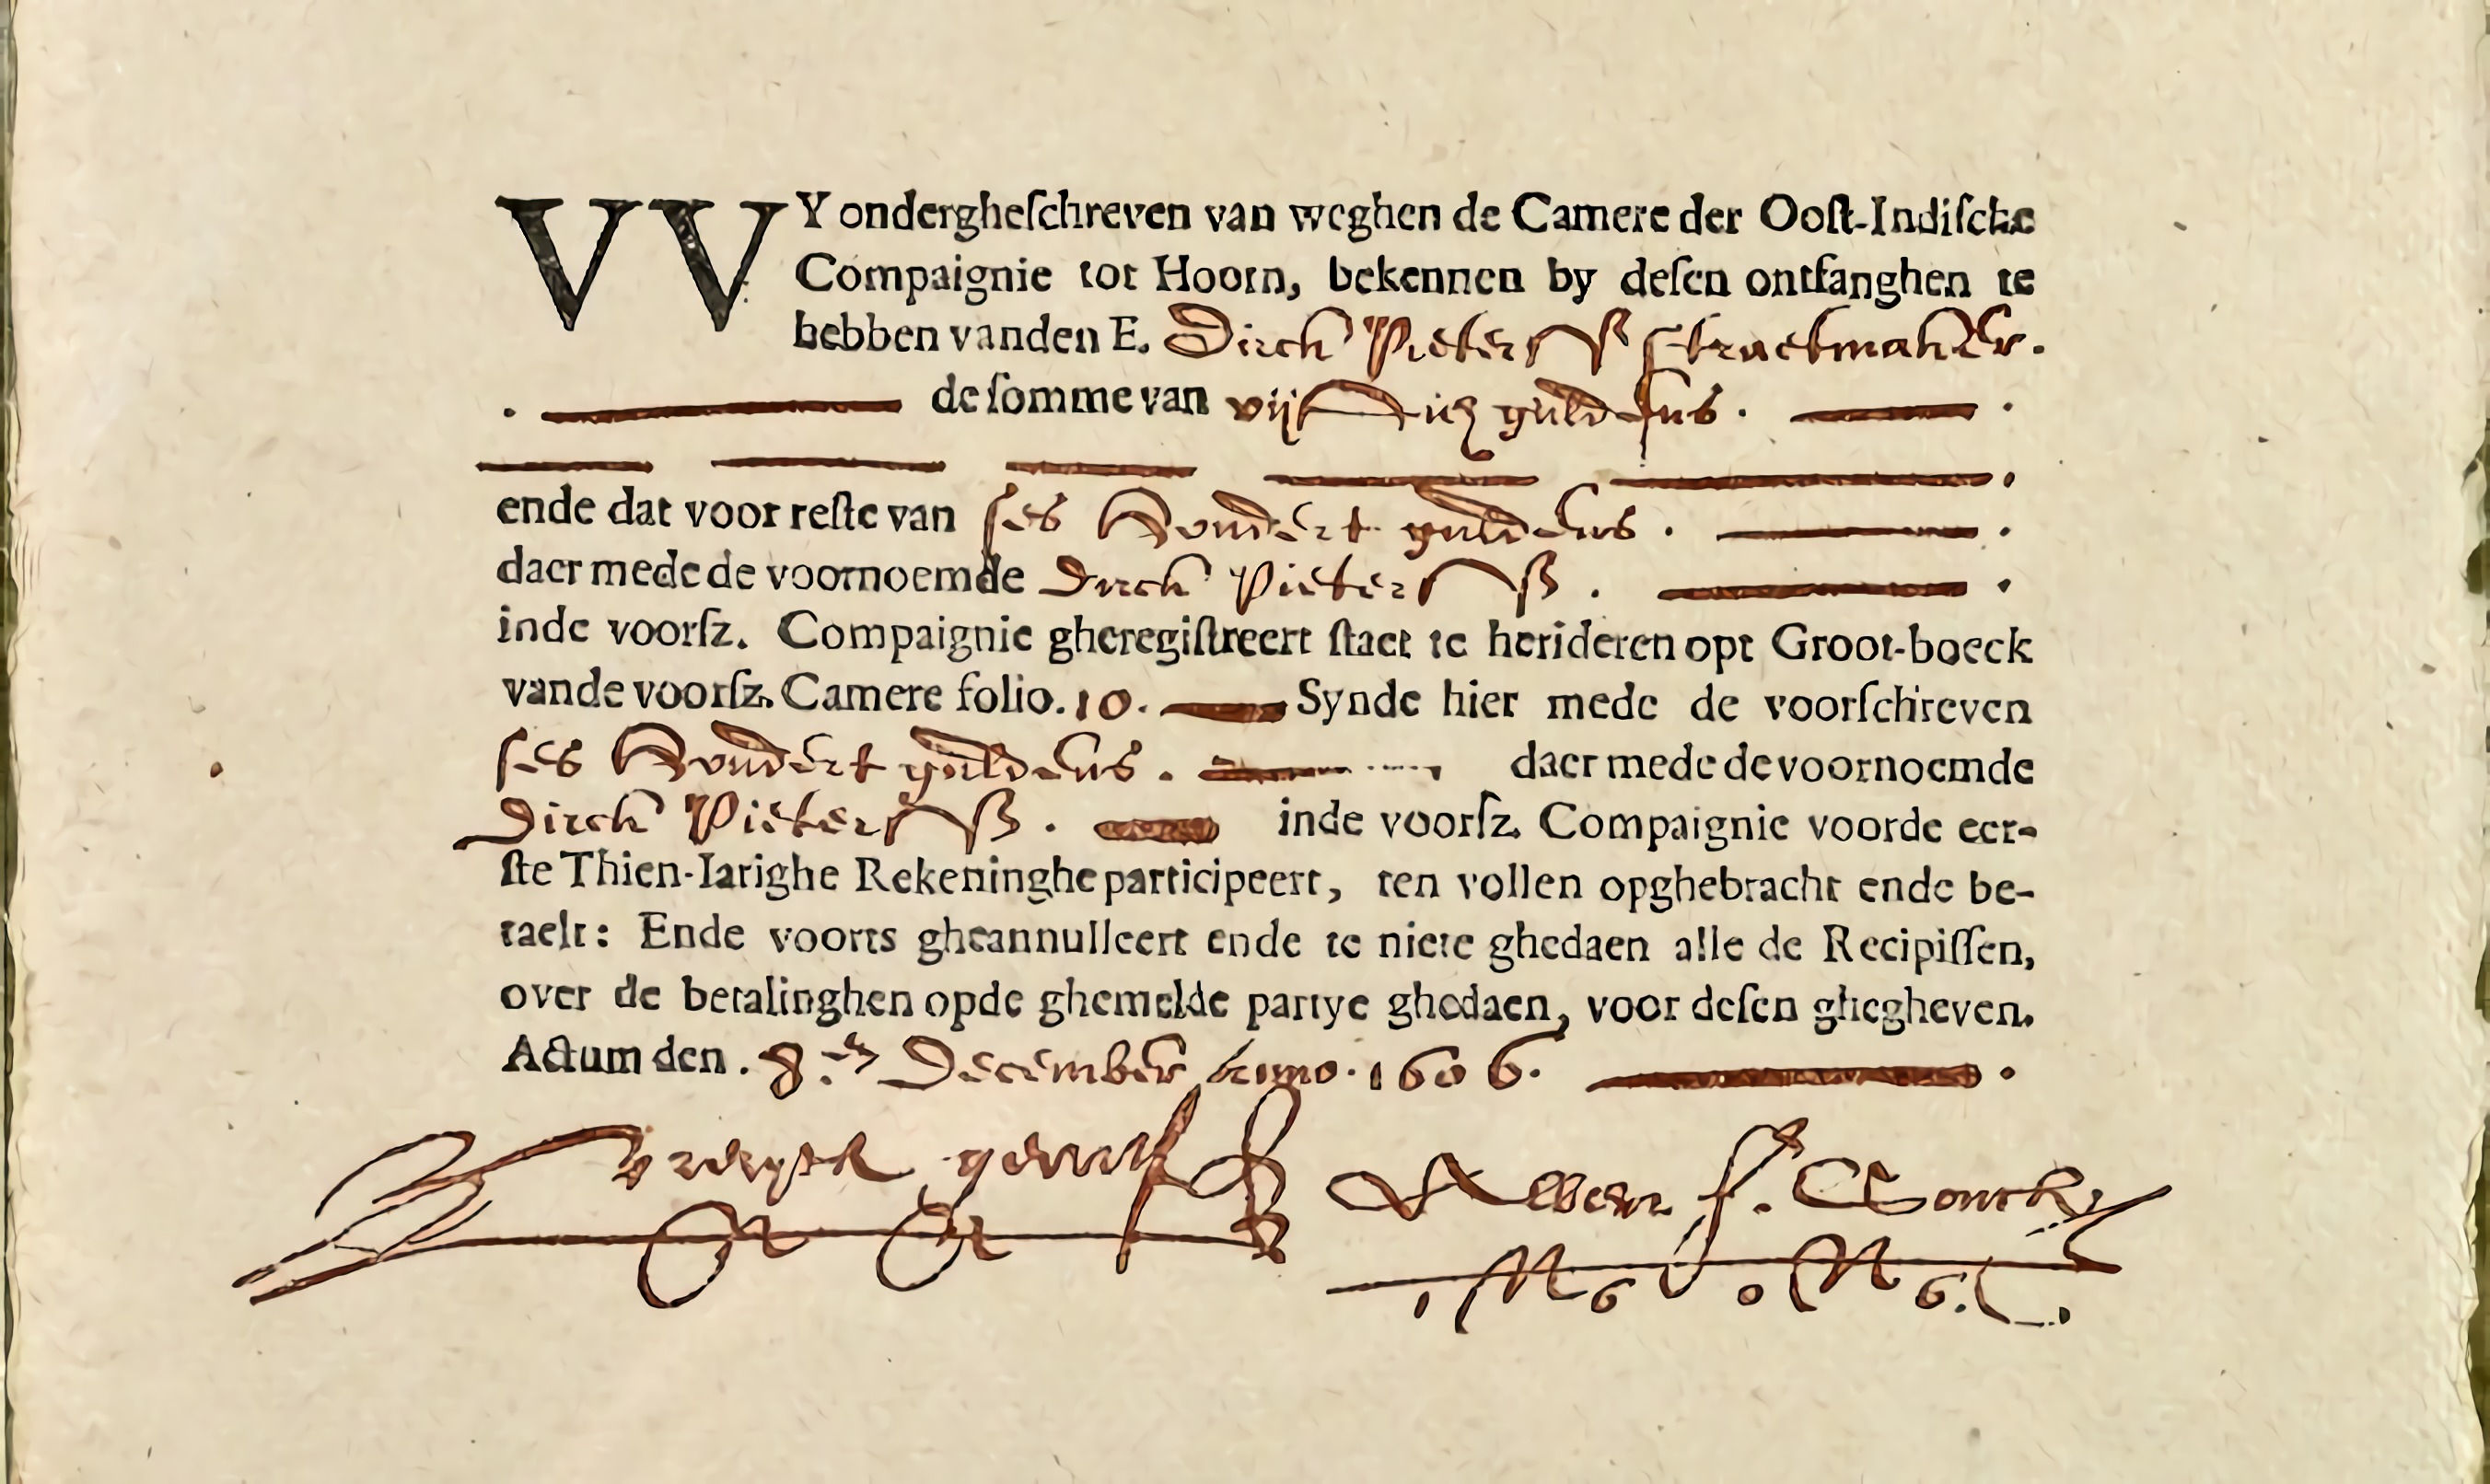 VVY ondergheſchreven van weghen de Camere der Ooſt-Indiſche
Compaignie tot Hoorn, bekennen by deſen ontfanghen te
hebben vanden E. Dirck Pieterſß ſtraetmaker.
de ſomme van vijftich guldens.
ende dat voor reſte van ſes hondert guldens.
daer mede de voornoemde Dirck Pieterſß.
inde voorſz. Compaignie gheregiſtreert ſtaet te herideren opt Groot-boeck
vande voorſz. Camere folio. 10. Synde hier mede de voorſchreven
ſes hondert guldens. daer mede de voornoemde
Dirck Pieterſß. inde voorſz. Compaignie voorde eer-
ſte Thien-Iarighe Rekeninghe participeert, ten vollen opghebracht ende be-
taelt: Ende voorts gheannulleert ende te niete ghedaen alle de Recipiſſen,
over de betalinghen opde ghemelde partye ghedaen, voor deſen ghegheven.
Actum den. 8. December Anno. 1606.